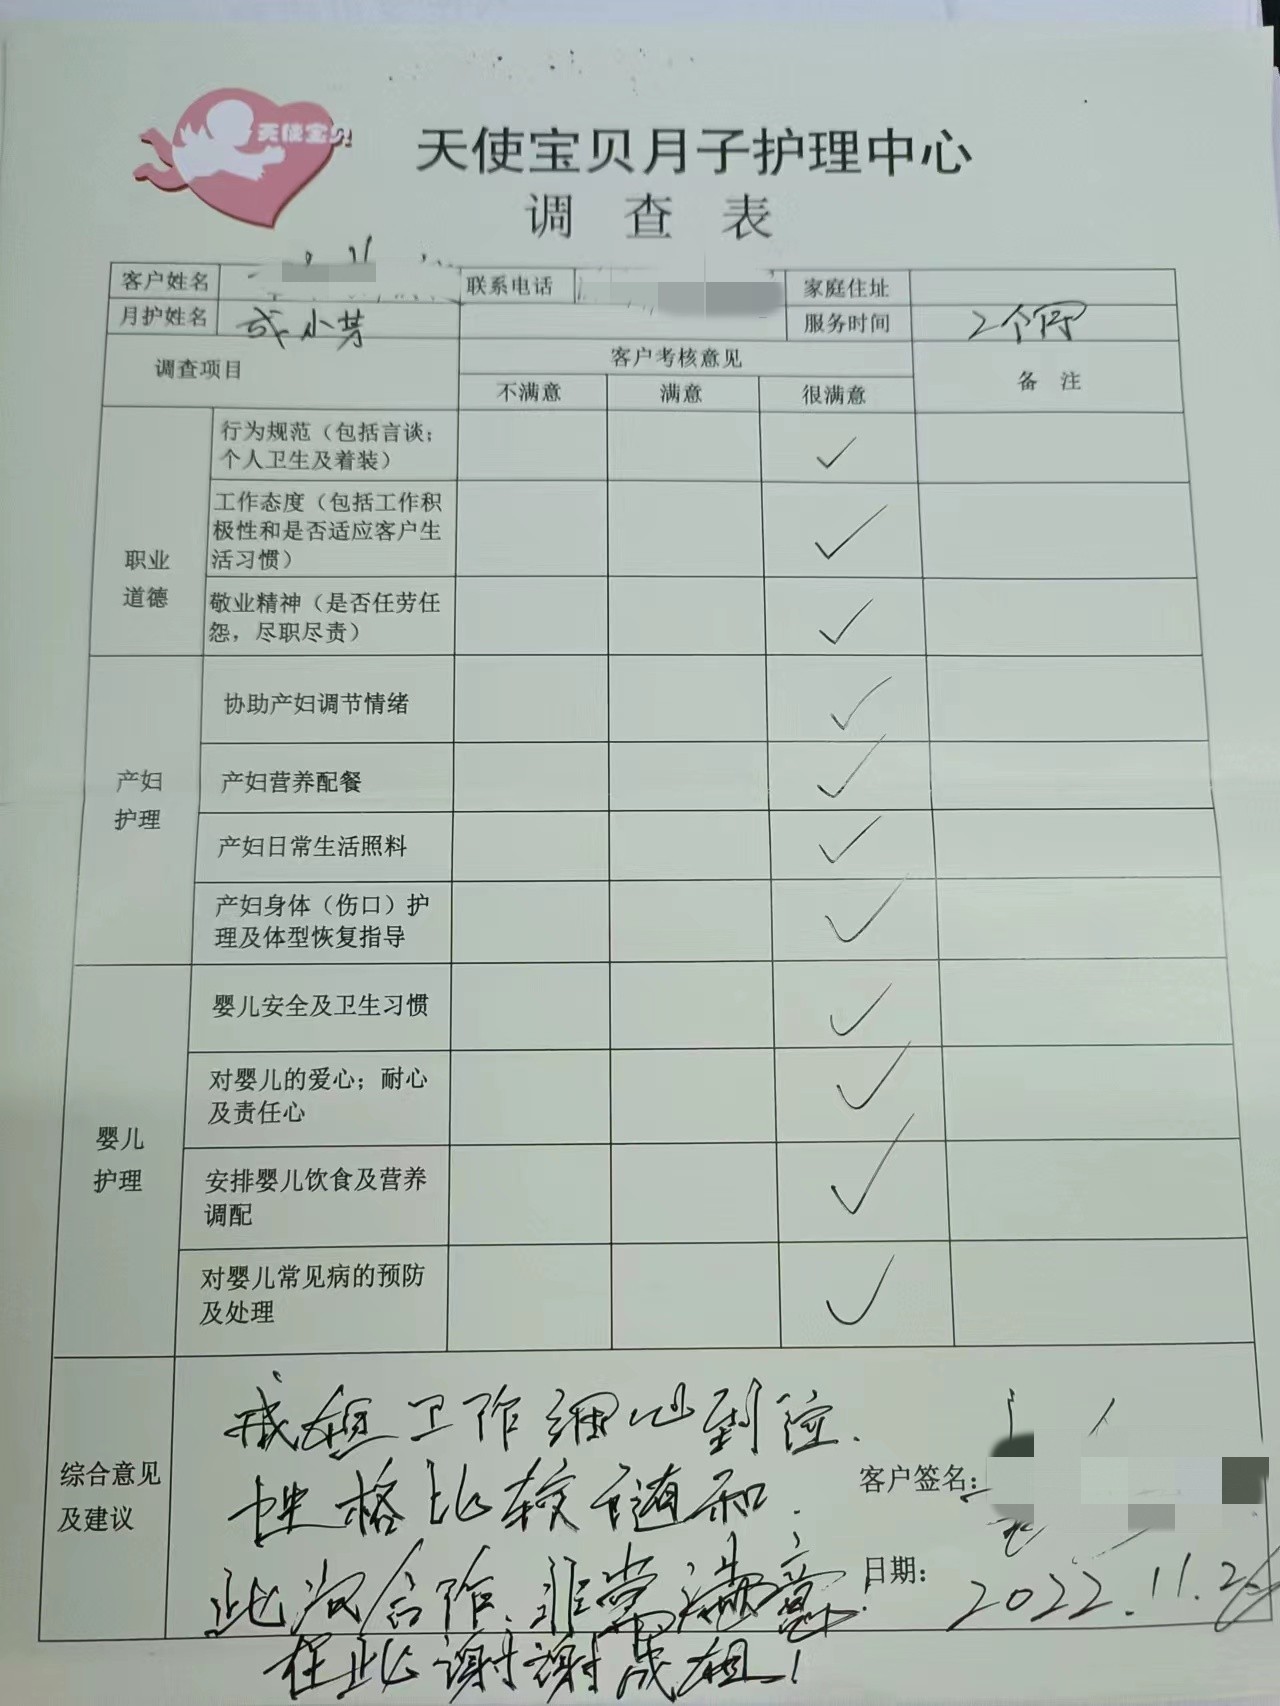 天使宝贝
天使宝贝月子护理中心
调查表
客户姓名 联系电话 家庭住址
月护姓名 小芳 服务时间 2个月
调查项目 客户考核意见 备注
不满意 满意 很满意
职业道德
行为规范（包括言谈；
个人卫生及着装）
工作态度（包括工作积
极性和是否适应客户生
活习惯）
敬业精神（是否任劳任
怨，尽职尽责）
产妇护理
协助产妇调节情绪
产妇营养配餐
产妇日常生活照料
产妇身体（伤口）护
理及体型恢复指导
婴儿护理
婴儿安全及卫生习惯
对婴儿的爱心；耐心
及责任心
安排婴儿饮食及营养
调配
对婴儿常见病的预防
及处理
综合意见
及建议
姐工作细心到位.
性格比较随和.
此次合作.非常满意!
在此谢谢成姐!
客户签名：
日期： 2022.11.2